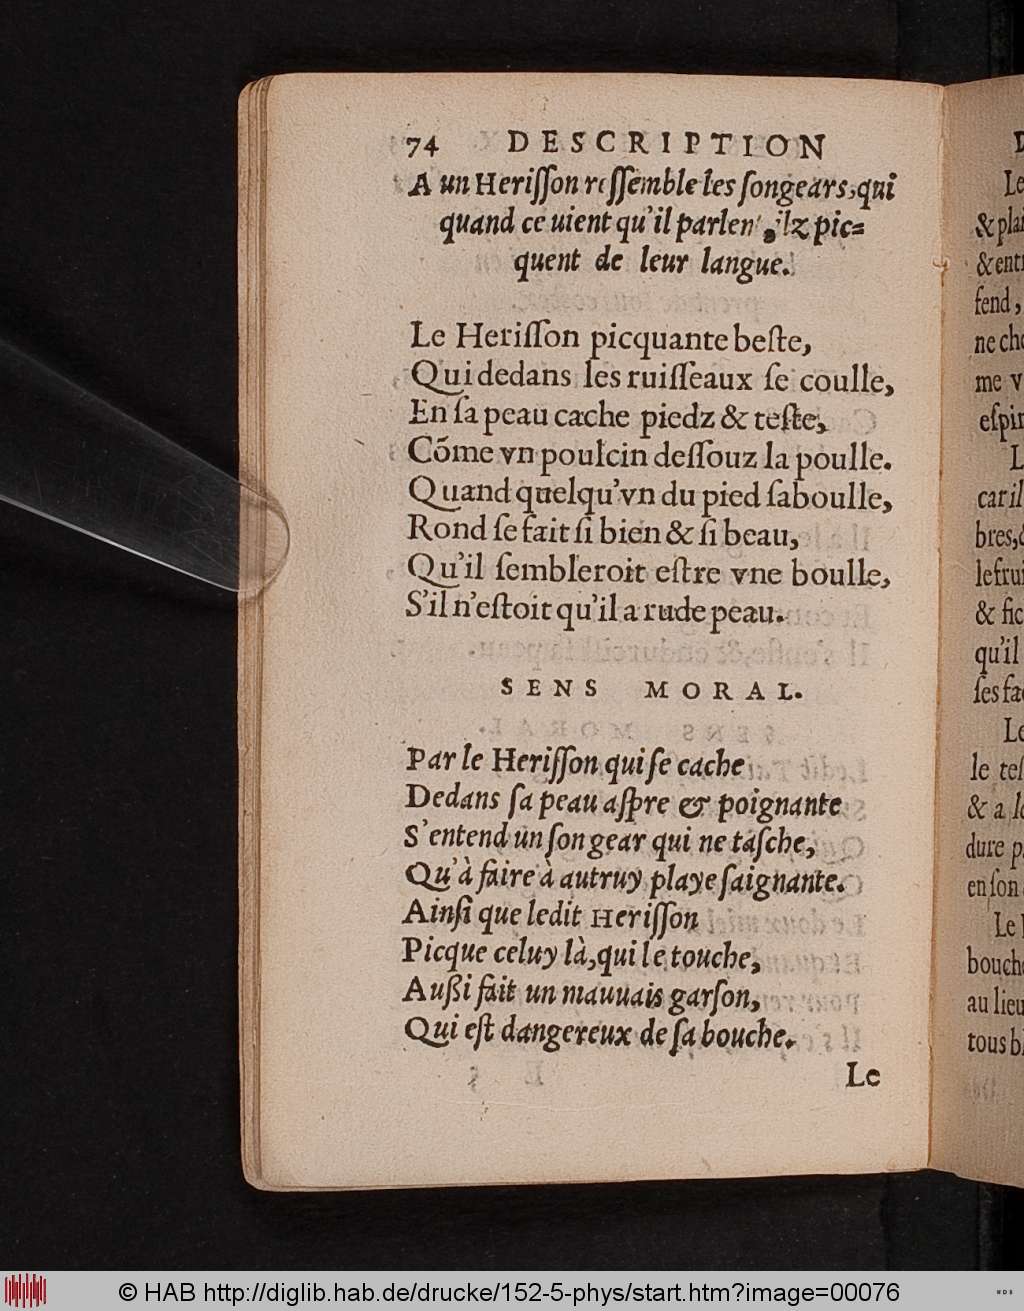 74 DESCRIPTION
A un Heriſſon reſſemble les ſongears, qui
quand ce uient qu'il parlent, ilz pic=
quent de leur langue.
Le Heriſſon picquante beſte,
Qui dedans les ruiſſeaux ſe coulle,
En ſa peau cache piedz & teſte,
Cõme vn poulcin deſſouz la poulle.
Quand quelqu'vn du pied ſaboulle,
Rond ſe fait ſi bien & ſi beau,
Qu'il ſembleroit eſtre vne boulle,
S'il n'eſtoit qu'il a rude peau.
SENS MORAL.
Par le Heriſſon qui ſe cache
Dedans ſa peau aſpre & poignante
S'entend un ſongear qui ne taſche,
Qu'à faire à autruy playe ſaignante.
Ainſi que ledit Heriſſon
Picque celuy là, qui le touche,
Außi fait un mauuais garſon,
Qui eſt dangereux de ſa bouche.
Le
Le
& plai
& entr
fend,
ne che
me v
eſpin
L
car il
bres, &
le frui
& fic
qu'il
ſes fa
Le
le teſ
& a le
dure p
en ſon
Le
bouche
au lieu
tous bl
© HAB http://diglib.hab.de/drucke/152-5-phys/start.htm?image=00076